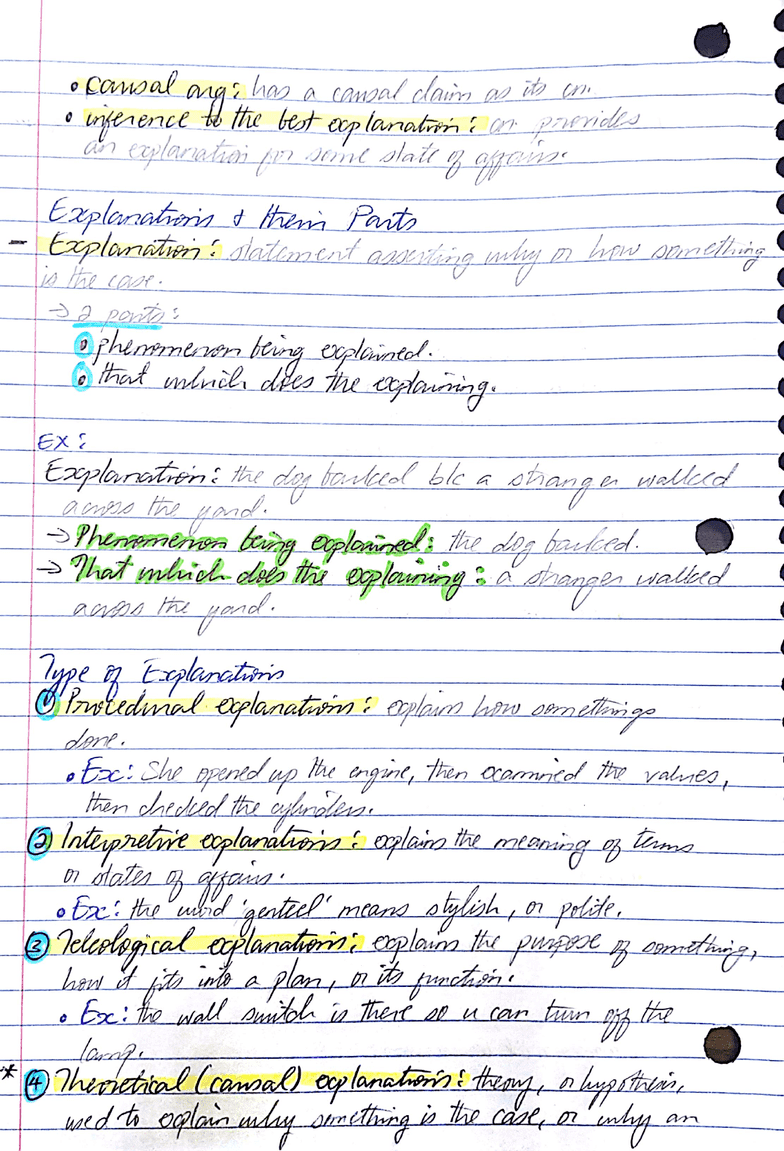 • causal arg: has a causal claim as its cn.
• inference to the best explanation: cn provides
an explanation for some state of affairs.
Explanations & their Parts
- Explanation: statement asserting why or how something
is the case.
→ 2 parts:
• phenomenon being explained.
• that which does the explaining.
EX:
Explanation: the dog barked b/c a stranger walked
across the yard.
→ Phenomenon being explained: the dog barked.
→ That which does the explaining: a stranger walked
across the yard.
Type of Explanations
1 Procedural explanations: explains how somethings
done.
• Ex: She opened up the engine, then examined the valves,
then checked the cylinders.
2 Interpretive explanations: explains the meaning of terms
or states of affairs.
• Ex: the word 'genteel' means stylish, or polite.
3 Teleological explanations: explains the purpose of something,
how it fits into a plan, or its function.
• Ex: the wall switch is there so u can turn off the
lamp.
* 4 Theoretical (causal) explanations: theory, or hypothesis,
used to explain why something is the case, or why an